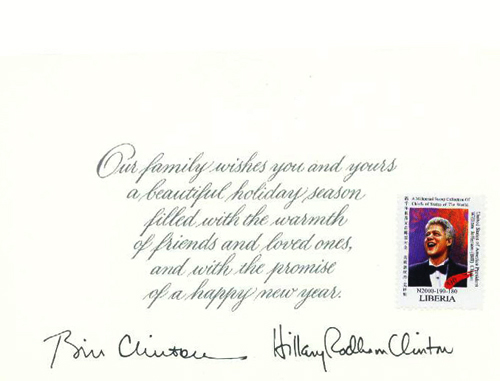 Our family wishes you and yours
a beautiful holiday season
filled with the warmth
of friends and loved ones,
and with the promise
of a happy new year.
Bill Clinton Hillary Rodham Clinton
A Millennial Stamp Collection Of
Chiefs of States of The World
United States of America President
William Jefferson (Bill) Clinton
N2000-190-180
LIBERIA